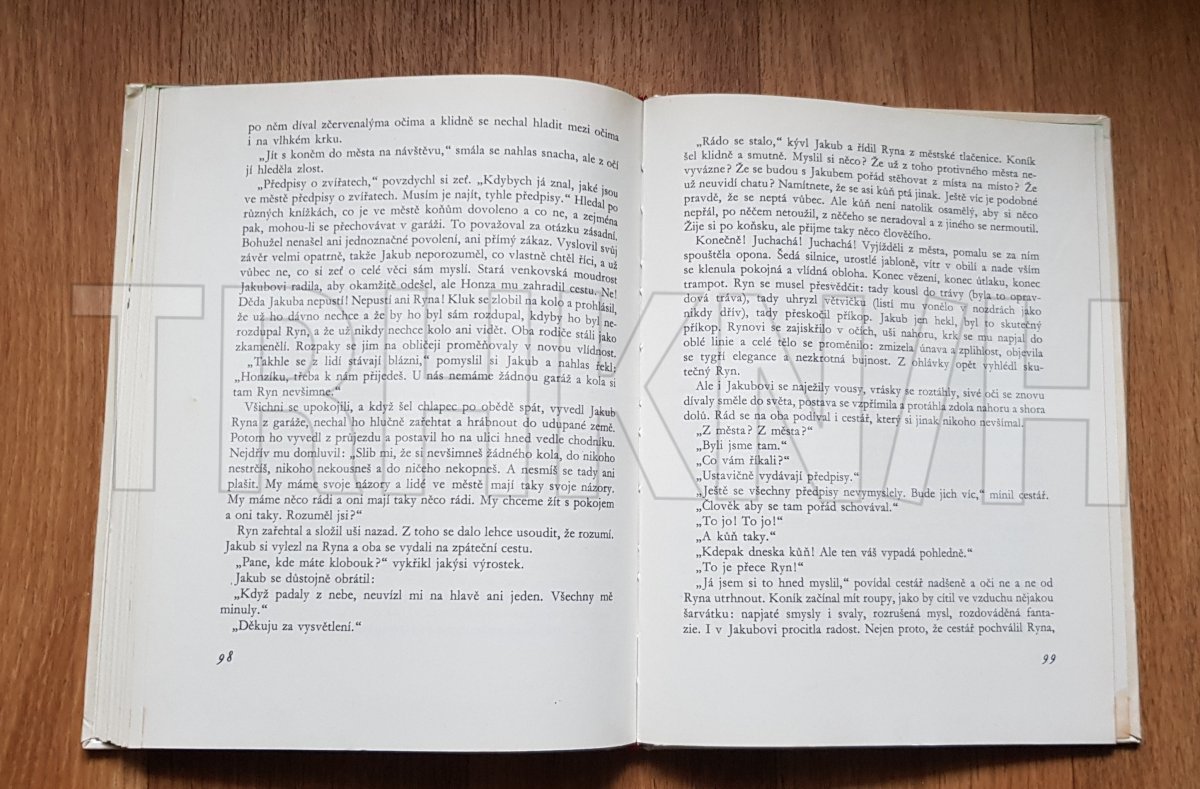 po něm díval zčervenalýma očima a klidně se nechal hladit mezi očima
i na vlhkém krku.
„Jít s koněm do města na návštěvu,“ smála se nahlas snacha, ale z očí
jí hleděla zlost.
„Předpisy o zvířatech,“ povzdychl si zeť. „Kdybych já znal, jaké jsou
ve městě předpisy o zvířatech. Musím je najít, tyhle předpisy.“ Hledal po
různých knížkách, co je ve městě koňům dovoleno a co ne, a zejména
pak, mohou-li se přechovávat v garáži. To považoval za otázku zásadní.
Bohužel nenašel ani jednoznačné povolení, ani přímý zákaz. Vyslovil svůj
závěr velmi opatrně, takže Jakub neporozuměl, co vlastně chtěl říci, a už
vůbec ne, co si zeť o celé věci sám myslí. Stará venkovská moudrost
Jakubovi radila, aby okamžitě odešel, ale Honza mu zahradil cestu. Ne!
Děda Jakuba nepustí! Nepustí ani Ryna! Kluk se zlobil na kolo a prohlásil,
že už ho dávno nechce a že by ho byl sám rozdupal, kdyby ho byl ne-
rozdupal Ryn, a že už nikdy nechce kolo ani vidět. Oba rodiče stáli jako
zkamenělí. Rozpaky se jim na obličeji proměňovaly v novou vlídnost.
„Takhle se z lidí stávají blázni,“ pomyslil si Jakub a nahlas řekl:
„Honzíku, třeba k nám přijedeš. U nás nemáme žádnou garáž a kola si
tam Ryn nevšimne.“
Všichni se upokojili, a když šel chlapec po obědě spát, vyvedl Jakub
Ryna z garáže, nechal ho hlučně zařehtat a hrábnout do udupané země.
Potom ho vyvedl z průjezdu a postavil ho na ulici hned vedle chodníku.
Nejdřív mu domluvil: „Slib mi, že si nevšimneš žádného kola, do nikoho
nestrčíš, nikoho nekousneš a do ničeho nekopneš. A nesmíš se tady ani
plašit. My máme svoje názory a lidé ve městě mají taky svoje názory.
My máme něco rádi a oni mají taky něco rádi. My chceme žít s pokojem
a oni taky. Rozuměl jsi?“
Ryn zařehtal a složil uši nazad. Z toho se dalo lehce usoudit, že rozumí.
Jakub si vylezl na Ryna a oba se vydali na zpáteční cestu.
„Pane, kde máte klobouk?“ vykřikl jakýsi výrostek.
Jakub se důstojně obrátil:
„Když padaly z nebe, neuvízl mi na hlavě ani jeden. Všechny mě
minuly.“
„Děkuju za vysvětlení.“
98
„Rádo se stalo,“ kývl Jakub a řídil Ryna z městské tlačenice. Koník
šel klidně a smutně. Myslil si něco? Že už z toho protivného města ne-
vyvázne? Že se budou s Jakubem pořád stěhovat z místa na místo? Že
už neuvidí chatu? Namítnete, že se asi kůň ptá jinak. Ještě víc je podobné
pravdě, že se neptá vůbec. Ale kůň není natolik osamělý, aby si něco
nepřál, po něčem netoužil, z něčeho se neradoval a z jiného se nermoutil.
Žije si po koňsku, ale přijme taky něco člověčího.
Konečně! Juchachá! Juchachá! Vyjížděli z města, pomalu se za ním
spouštěla opona. Šedá silnice, urostlé jabloně, vítr v obilí a nade vším
se klenula pokojná a vlídná obloha. Konec vězení, konec útlaku, konec
trampot. Ryn se musel přesvědčit: tady kousl do trávy (byla to oprav-
dová tráva), tady uhryzl větvičku (listí mu vonělo v nozdrách jako
nikdy dřív), tady přeskočil příkop. Jakub jen hekl, byl to skutečný
příkop. Rynovi se zajiskřilo v očích, uši nahoru, krk se mu napjal do
oblé linie a celé tělo se proměnilo: zmizela únava a zplihlost, objevila
se tygří elegance a nezkrotná bujnost. Z ohlávky opět vyhlédl sku-
tečný Ryn.
Ale i Jakubovi se naježily vousy, vrásky se roztáhly, sivé oči se znovu
dívaly směle do světa, postava se vzpřímila a protáhla zdola nahoru a shora
dolů. Rád se na oba podíval i cestář, který si jinak nikoho nevšímal.
„Z města? Z města?“
„Byli jsme tam.“
„Co vám říkali?“
„Ustavičně vydávají předpisy.“
„Ještě se všechny předpisy nevymyslely. Bude jich víc,“ mínil cestář.
„Člověk aby se tam pořád schovával.“
„To jo! To jo!“
„A kůň taky.“
„Kdepak dneska kůň! Ale ten váš vypadá pohledně.“
„To je přece Ryn!“
„Já jsem si to hned myslil,“ povídal cestář nadšeně a oči ne a ne od
Ryna utrhnout. Koník začínal mít roupy, jako by cítil ve vzduchu nějakou
šarvátku: napjaté smysly i svaly, rozrušená mysl, rozdováděná fanta-
zie. I v Jakubovi procitla radost. Nejen proto, že cestář pochválil Ryna,
99
TRHKNIH